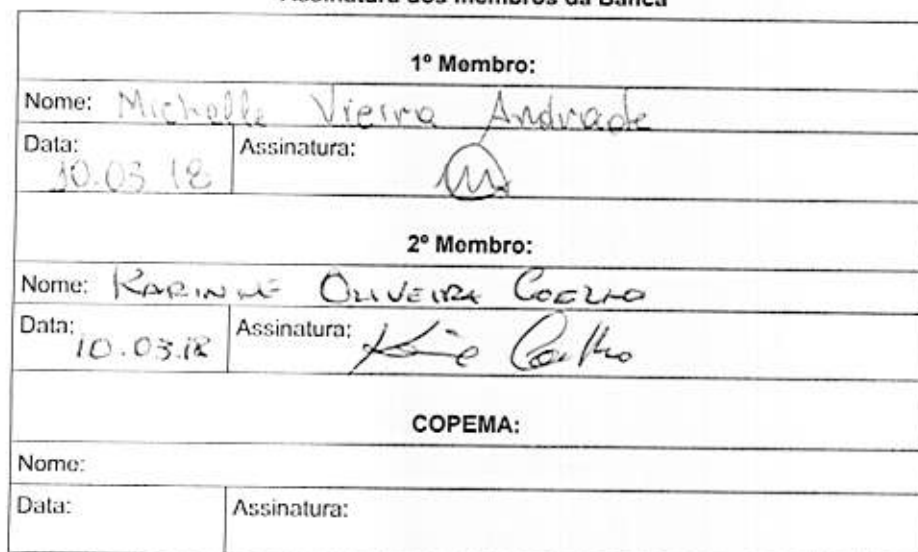 Assinatura dos Membros da Banca
1º Membro:
Nome: Michelle Vieira Andrade
Data: 10.03.18 Assinatura:
2º Membro:
Nome: KARINNE OLIVEIRA COELHO
Data: 10.03.18 Assinatura: Coelho
COPEMA:
Nome:
Data: Assinatura: